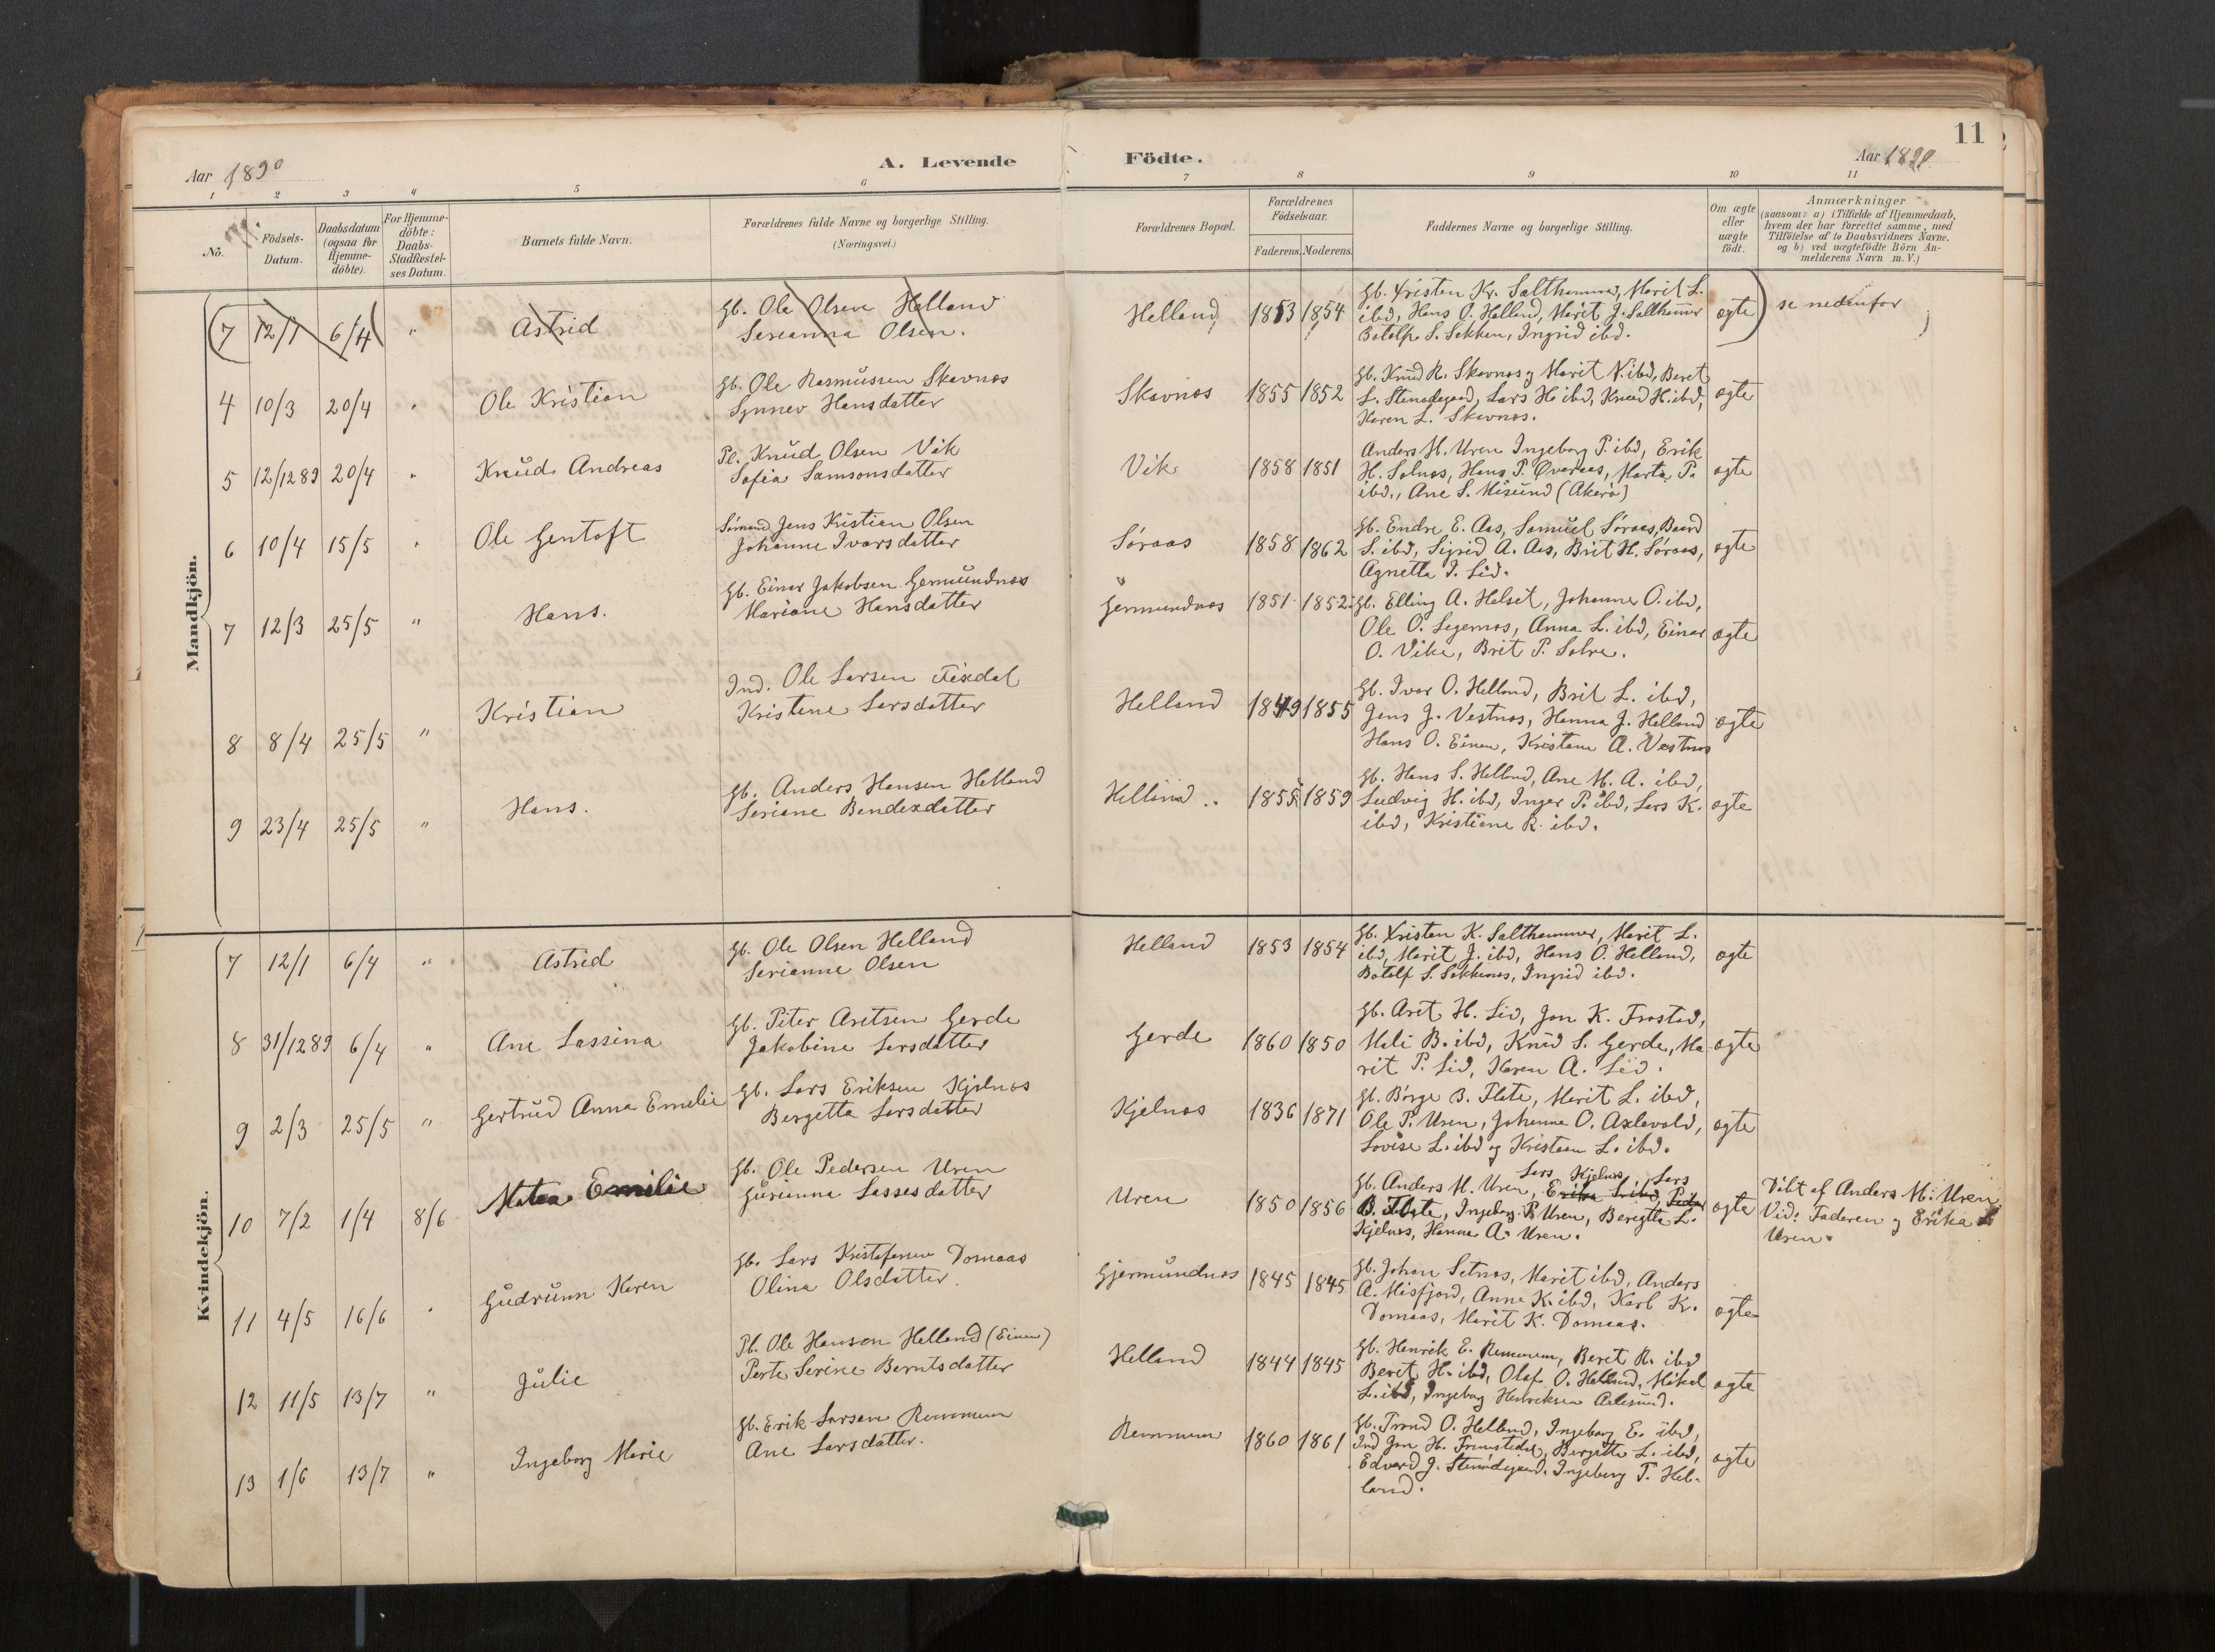 11
Aar 1890
A. Levende Födte.
Aar 1890
1 2 3 4 5 6 7 8 9 10 11
No.
Födsels-
Datum.
Daabsdatum
(ogsaa for
Hjemme-
döbte).
For Hjemme-
döbte:
Daabs-
Stadfæstel-
ses Datum.
Barnets fulde Navn.
Forældrenes fulde Navne og borgerlige Stilling.
(Næringsvei.)
Forældrenes Bopæl.
Forældrenes
Födselsaar.
Faderens. Moderens.
Faddernes Navne og borgerlige Stilling.
Om ægte
eller
uægte
födt.
Anmærkninger
(saasom: a) i Tilfælde af Hjemmedaab,
hvem der har forrettet samme, med
Tilföielse af to Daabsvidners Navne,
og b) ved uægtefödte Börn An-
melderens Navn m. V.)
Mandkjön.
7 12/1 6/4 " Astrid
Gb. Ole Olsen Helland
Serianna Olsen.
Helland 1853 1854
Gb. Kristen Kr. Salthammer, Marit L.
ibd, Hans O. Helland, Marit J. Salthammer
Botolf S. Sekken, Ingrid ibd.
ægte
se nedenfor
4 10/3 20/4 " Ole Kristian
Gb. Ole Rasmussen Skavnes
Synnev Hansdatter
Skavnes 1855 1852
Gb. Knud R. Skavnes og Marit N. ibd, Beret
L. Stenødegaard, Lars H ibd, Knud H. ibd,
Karen L. Skavnes.
ægte
5 12/12 89 20/4 " Knud Andreas
Pl. Knud Olsen Vik
Sofia Samsonsdatter
Vik 1858 1851
Anders M. Uren Ingeborg P. ibd, Erik
H. Solnes, Hans P. Øveraas, Marta P.
ibd., Ane S. Misund (Akerö)
ægte
6 10/4 15/5 " Ole Gentoft
Sömand Jens Kristian Olsen
Johanne Ivarsdatter
Söraas 1858 1862
Gb. Endre E. Aas, Samuel Söraas, Baard
S. ibd, Sigrid A. Aas, Brit H. Söraas,
Agnetta I. Lid.
ægte
7 12/3 25/5 " Hans.
Gb. Einar Jakobsen Germundnes
Mariane Hansdatter
Germundnes 1851 1852
Gb. Elling A. Helset, Johanne O. ibd,
Ole O. Legernes, Anna L. ibd, Einar
O. Vike, Brit P. Solre.
ægte
8 8/4 25/5 " Kristian
Ind. Ole Larsen Fixdal
Kristine Larsdatter
Helland 1849 1855
Gb. Ivar O. Helland, Brit L. ibd,
Jens J. Vestnes, Hanna J. Helland
Hans O. Einen, Kristane A. Vestnes
ægte
9 23/4 25/5 " Hans.
Gb. Anders Hansen Helland
Seriane Bendexdatter
Helland 1855 1859
Gb. Hans S. Helland, Ane M. A. ibd,
Ludvig H. ibd, Inger P. ibd, Lars K.
ibd, Kristiane R. ibd.
ægte
Kvindekjön.
7 12/1 6/4 " Astrid
Gb. Ole Olsen Helland
Serianne Olsen
Helland 1853 1854
Gb. Kristen K. Salthammer, Marit L.
ibd, Marit J. ibd, Hans O. Helland,
Botolf S. Sekkenes, Ingrid ibd.
ægte
8 31/12 89 6/4 " Ane Lassina
Gb. Peter Aretsen Gerde
Jakobine Larsdatter
Gerde 1860 1850
Gb. Aret H. Lid, Jon K. Frostad,
Mali B. ibd, Knud S. Gerde, Ma
rit P. Lid, Karen A. Lid.
ægte
9 2/3 25/5 " Gertrud Anna Emelie
Gb. Lars Eriksen Kjelnes
Bergetta Larsdatter
Kjelnes 1836 1871
Gb. Börge B. Flate, Marit L. ibd,
Ole P. Uren, Johanne O. Axlevold,
Lovise L. ibd og Kristian L. ibd.
ægte
10 7/2 1/4 8/6 Matea Emilie
Gb. Ole Pedersen Uren
Gurianna Lassesdatter
Uren 1850 1856
Gb. Anders M. Uren, Erika L. ibd, Peder Lars Kjelnes, Lars
B. Flate, Ingeborg P. Uren, Beregtta L.
Kjelnes, Hanna A. Uren.
ægte
Döbt af Anders M. Uren
Vid: Faderen og Erika L
Uren.
11 4/5 16/6 " Gudrunn Karen
Gb. Lars Kristofersen Domaas
Olina Olsdatter.
Gjermundnes 1845 1845
Gb. Johan Setnes, Marit ibd, Anders
A. Misfjord, Anne K. ibd, Karl K.
Domaas, Marit K. Domaas.
ægte
12 11/5 13/7 " Julie
Pl. Ole Hanson Helland (Einen)
Perte Serine Berntsdatter
Helland 1844 1845
Gb. Henrik E. Remmem, Beret R. ibd
Beret H. ibd, Olaf O. Helland, Mikal
L. ibd, Ingeborg Henriksen Aalesund.
ægte
13 1/6 13/7 " Ingeborg Marie
Gb. Erik Larsen Remmem
Ane Larsdatter.
Remmem 1860 1861
Gb. Trond O. Helland, Ingeborg E. ibd,
Ind Jon H. Bergitte L. ibd,
Edvard J. Stenödegaard, Ingeborg T. Hel-
land.
ægte